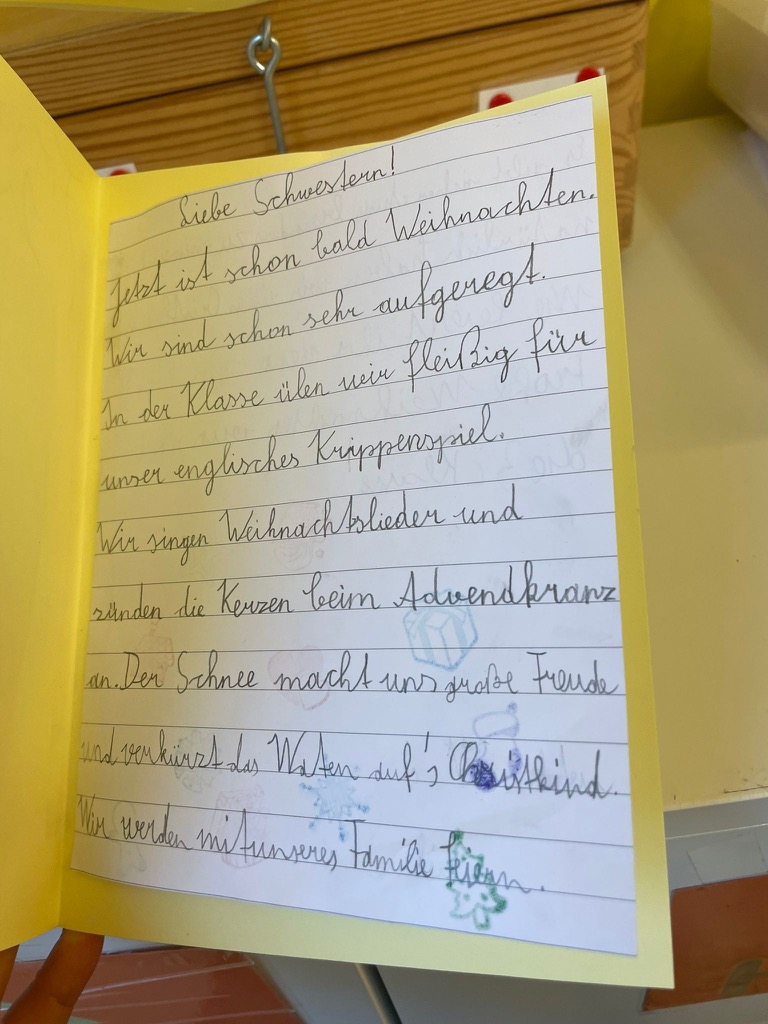 Liebe Schwestern!
Jetzt ist schon bald Weihnachten.
Wir sind schon sehr aufgeregt.
In der Klasse üben wir fleißig für
unser englisches Krippenspiel.
Wir singen Weihnachtslieder und
zünden die Kerzen beim Advendkranz
an. Der Schnee macht uns große Freude
und verkürzt das Waten auf's Christkind.
Wir werden mit unseres Familie feiern.